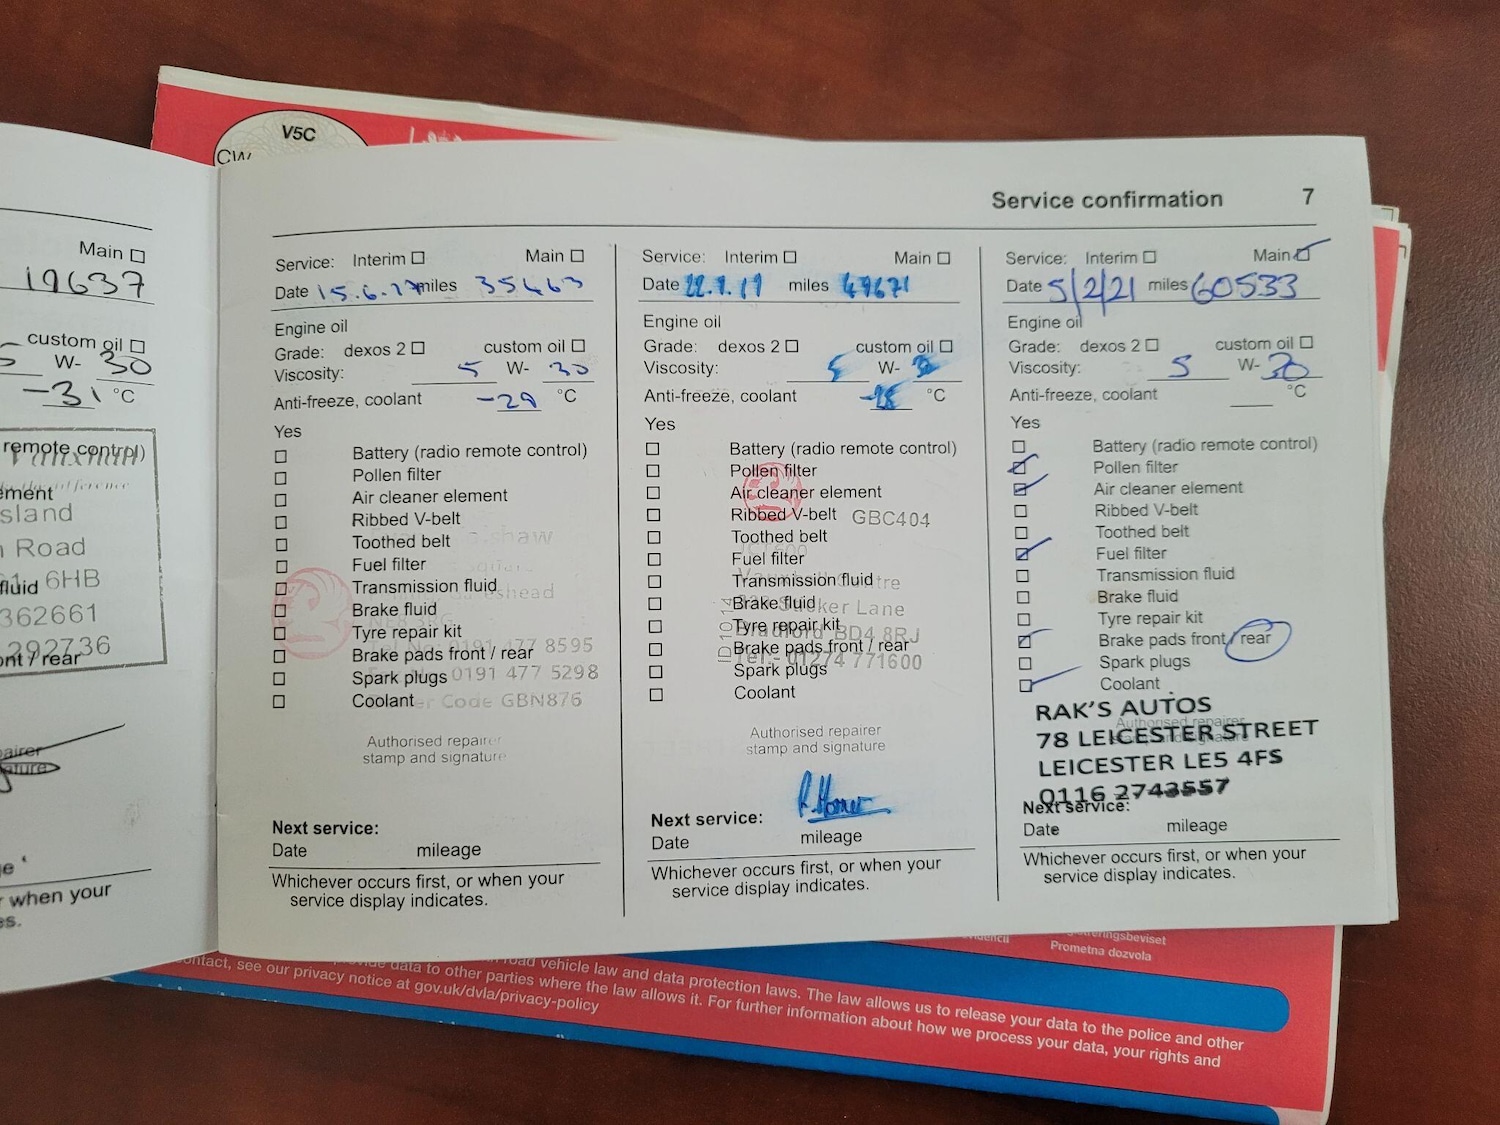 V5C
CW
Main
19637
custom oil
W- 30
-31 °C
remote control)
ement
sland
Road
fluid 6HB
362661
292736
nt / rear
when your
es.
Service confirmation 7
Service: Interim Main
Date 15.6.17 miles 35463
Engine oil
Grade: dexos 2 custom oil
Viscosity: 5 W- 30
Anti-freeze, coolant -29 °C
Yes
Battery (radio remote control)
Pollen filter
Air cleaner element
Ribbed V-belt
Toothed belt
Fuel filter
Transmission fluid
Brake fluid
Tyre repair kit
Brake pads front / rear
Spark plugs
Coolant
0191 477 8595
0191 477 5298
Code GBN876
Authorised repairer
stamp and signature
Next service:
Date mileage
Whichever occurs first, or when your
service display indicates.
Service: Interim Main
Date miles 49671
Engine oil
Grade: dexos 2 custom oil
Viscosity: 5 W- 30
Anti-freeze, coolant °C
Yes
Battery (radio remote control)
Pollen filter
Air cleaner element
Ribbed V-belt GBC404
Toothed belt
Fuel filter
Transmission fluid
Brake fluid
Tyre repair kit
Brake pads front / rear
Spark plugs
Coolant
Lane
Bradford BD4 8RJ
Tel:- 01274 771600
Authorised repairer
stamp and signature
Next service:
Date mileage
Whichever occurs first, or when your
service display indicates.
Service: Interim Main
Date 5/2/21 miles 60533
Engine oil
Grade: dexos 2 custom oil
Viscosity: 5 W- 30
Anti-freeze, coolant °C
Yes
Battery (radio remote control)
Pollen filter
Air cleaner element
Ribbed V-belt
Toothed belt
Fuel filter
Transmission fluid
Brake fluid
Tyre repair kit
Brake pads front / rear
Spark plugs
Coolant
Authorised repairer
stamp and signature
RAK'S AUTOS
78 LEICESTER STREET
LEICESTER LE5 4FS
0116 2743557
Next service:
Date mileage
Whichever occurs first, or when your
service display indicates.
Prometna dozvola
data to other parties where the law allows it. For further information about how we process your data, your rights and
road vehicle law and data protection laws. The law allows us to release your data to the police and other
contact, see our privacy notice at gov.uk/dvla/privacy-policy